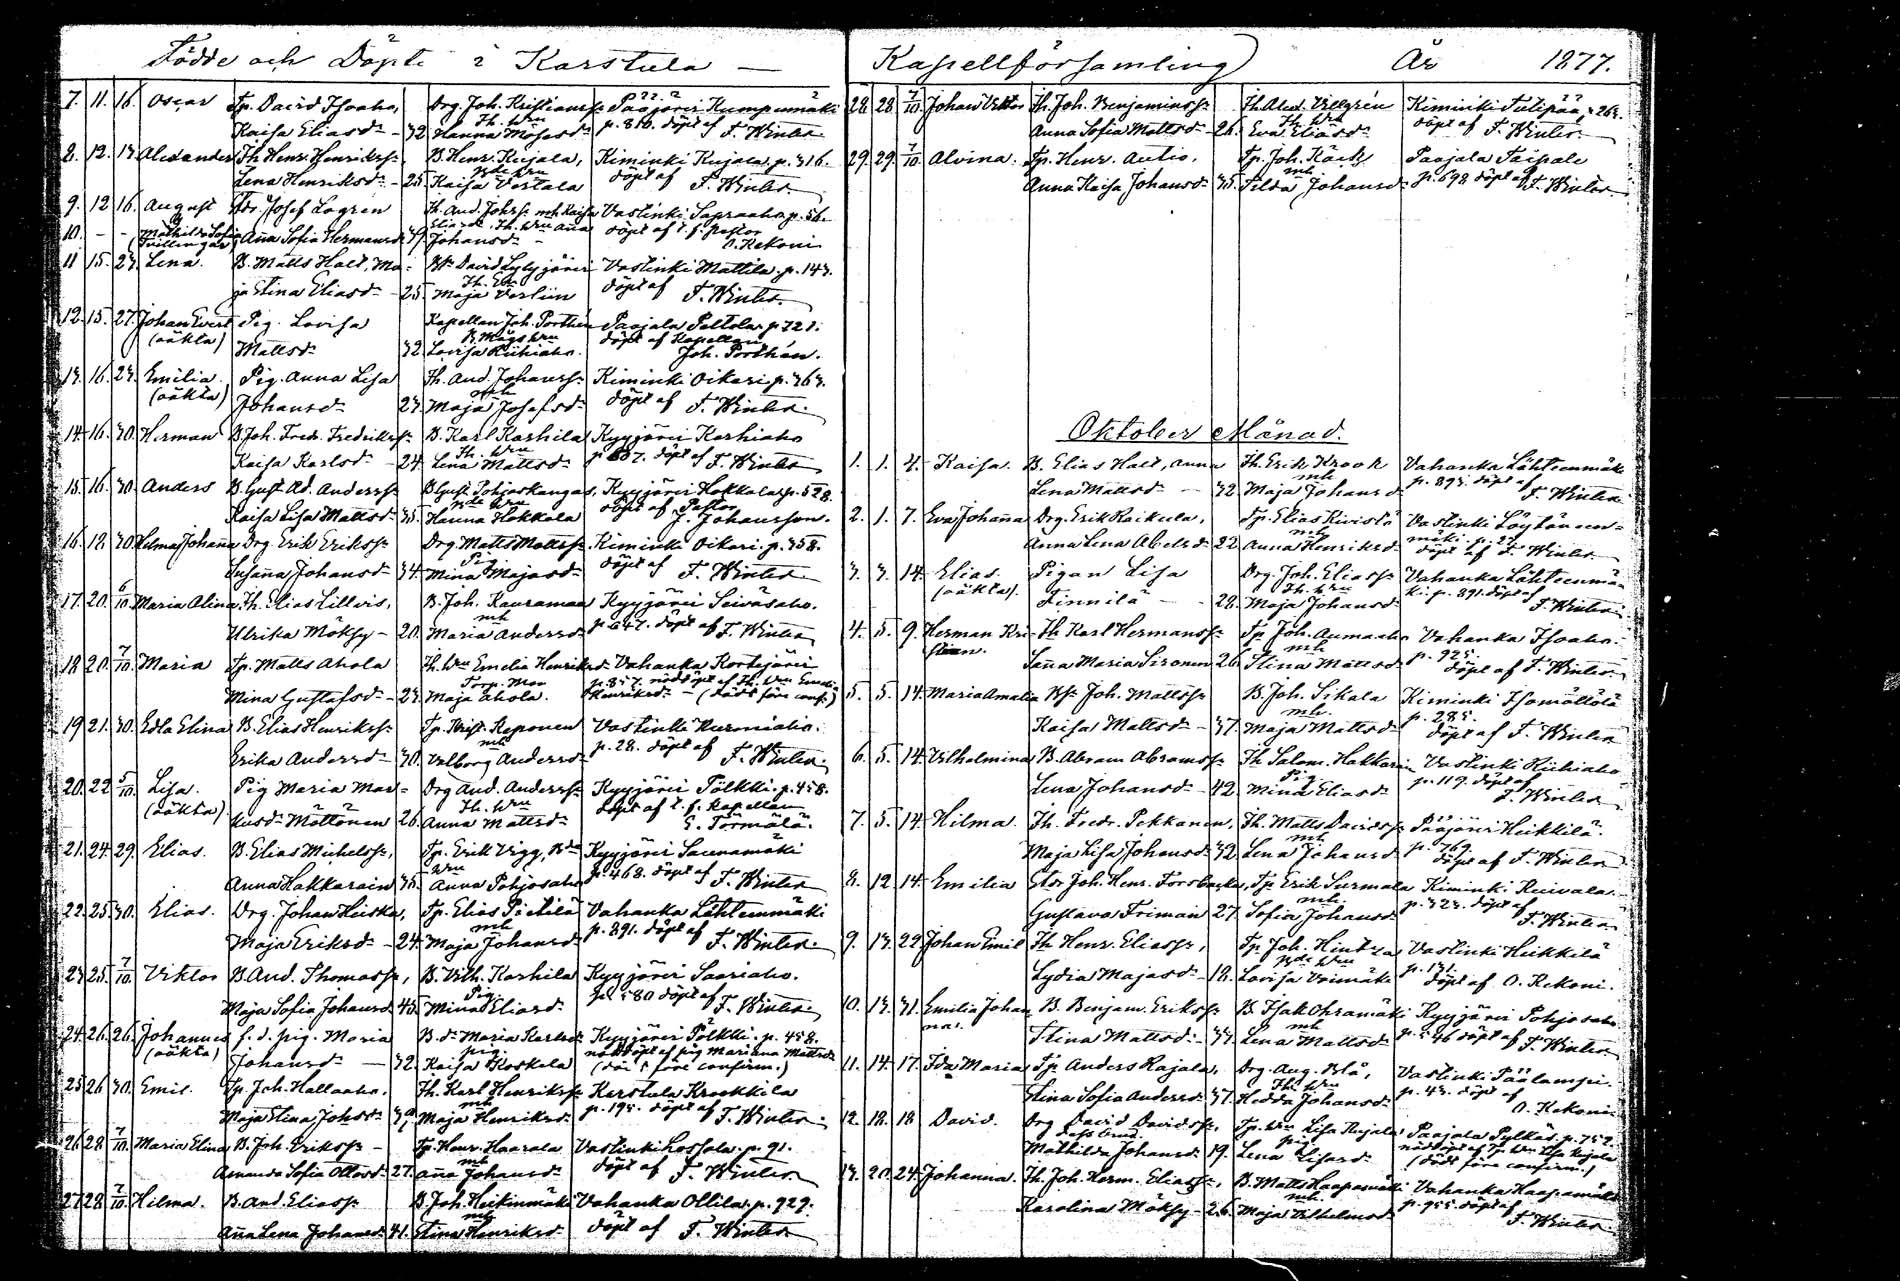 Födde och Döpte i Karstula — Kapellförsamling År 1877.
7. 11. 16. Oscar Tp. David Isoaho, Drg. Joh. Kristianss: Pääjärvi Kumpumäki
Kaisa Eliasd: - 32. Th. Wn Hanna Mosesd: p. 810. döpt af F. Winter
8. 12. 17. Alexander Th Henr. Henrikss: B. Henr. Kujala, Kiminki Kujala p. 316.
Lena Henriksd: - 25. Kaisa Vertala döpt af F. Winter
9. 12 16. August Josef Logren Th. And. Johss: mh Kaisa Vastinki p. 56.
10. - - Mathilda Sofia (Tvillingar) Anna Sofia Hermansd: Eliasd: Th. Wn Anna Johansd: döpt af t. f. Pastor O. Rekoni
11 15. 23. Lena. B. Matts Halt, Ma- David Lylyjärvi Vastinki Mattila. p. 143.
ja Stina Eliasd: - 25. Maja döpt af F. Winter
12. 15. 27. Johan Evert Pig. Lovisa Kapellan Joh. Porthén Paajala Peltola. p. 721.
(oäkta) Mattsd: 32. Lovisa Riihiaho. döpt af Kapellan Joh. Porthén.
13. 16. 23. Emilia. Pig. Anna Lisa Th. And. Johanss: Kiminki Oikari p. 363.
(oäkta) Johansd: 23. mh Maja Josefsd: döpt af F. Winter
14. 16. 30. Herman B. Joh. Fredr. Fredrikss: B. Karl Karhila Kyyjärvi Karhiaho
Kaisa Karlsd: - 24. Th. Wn Lena Mattsd: döpt af F. Winter
15. 16. 30. Anders B. Gust. Ad. Anderss: B. Gust. Pohjoskangas, Kyyjärvi Hokkala p. 528.
Kaisa Lisa Mattsd: 35. Hanna Hokkala döpt af Pastor J. Johansson.
16. 18. 30. Hilma Johanna Drg. Erik Erikss: Drg. Matts Mattss: Kiminki Oikari p. 358.
Susanna Johansd: 34. Pig. Mina Majasd: döpt af F. Winter
17. 20. 6/10 Maria Alina Th. Elias Lillvis, B. Joh. Kauramaa Kyyjärvi Seiväsaho.
Ulrika Möksy - 20. mh Maria Andersd: p. 647. döpt af F. Winter
18 20. 7/10. Maria Tp. Matts Ahola Th. Wn Emelia Henriksd: Vahanka Kortejärvi
Mina Gustafsd: - 23. Maja Ahola. p. 857. nöddöpt af Th. Wn Emelia Henriksd: - (dödt före conf.)
19 21. 30. Edla Elina B. Elias Henrikss: Tp. Krist. Reponen Vastinki
Erika Andersd: 30. mh Valborg Andersd: p. 28. döpt af F. Winter
20. 22 5/10. Lisa. Pig Maria Mar- Drg And. Anderss: Kyyjärvi Pölkki. p. 458.
(oäkta). kusd: Möttönen 26. Th. Wn Anna Mattsd: döpt af t. f. Kapellan E. Törmälä.
21. 24. 29. Elias. B. Elias Michelss:, Tp. Erik Vigg, Kyyjärvi Saunamäki
Anna Hakkarain 35. Anna Pohjosaho p. 468. döpt af F. Winter
22. 25 30. Elias. Drg. Johan Heiska, Tp. Elias Pietilä Vahanka Lähteenmäki
Maja Eriksd: - 24. mh Maja Johansd: p. 891. döpt af F. Winter
23 25. 7/10. Viktor B. And. Thomass:, B. Vilh. Karhila Kyyjärvi Saariaho.
Maja Sofia Johansd: 43. Pig Mina Eliasd: p. 580 döpt af F. Winter
24. 26. 26. Johannes f. d. pig. Maria Maria Karlsd: Kyyjärvi Pölkki. p. 458.
(oäkta) Johansd: — 32. pig. Kaisa Koskela nöddöpt af pig Mariana Mattsd: (död före confirm.)
25 26 30. Emil. Tp. Joh. Hallaaho. Th. Karl Henrikss: Karstula Krockkila
Maja Stina Johsd: mh Maja Henriksd: p. 195. döpt af F. Winter
26. 28. 7/10. Maria Elina B. Joh. Erikss: - Tp. Henr. Haarala Vastinki Lossola. p. 91.
Amanda Sofia Ottosd: 27. mh Anna Johansd: döpt af F. Winter
27. 28. 7/10. Hilma. B. And. Eliass: B. Joh. Heikinmäki Vahanka Ollila. p. 929.
Anna Lena Johansd: 41. mh Stina Henriksd: döpt af F. Winter
28. 28. 7/10. Johan Viktor Th. Joh. Benjaminss: Th. Alexd. Villgrén Kiminki Tulipää, p. 263.
Anna Sofia Mattsd: - 26. Th. Wn Eva Eliasd: döpt af F. Winter
29. 29. 7/10. Alvina. Tp. Henr. Autio. Tp. Joh. Paajala Taipale
Anna Kaisa Johansd: 35. mh Tilda Johansd: p. 698 döpt af F. Winter
Oktober Månad.
1. 1. 4. Kaisa. B. Elias Halt, Anna Th. Erik Krook Vahanka Lähteenmäki
Lena Mattsd: - 32. mh Maja Johansd: p. 893. döpt af F. Winter
2. 1. 7. Eva Johanna Drg. Erik Raikula, Tp. Elias Kivistö Vastinki Löytänen-
Anna Lena Abelsd: 22. mh Anna Henriksd: mäki. p. 27 döpt af F. Winter
3. 3. 14. Elias. Pigan Lisa Drg. Joh. Eliass: Vahanka Lähteenmä-
(oäkta). Finnilä - 28. Th. Wn Maja Johansd: ki. p. 891. döpt af F. Winter
4. 5. 9. Herman Kri- Th Karl Hermanss: Tp. Joh. Aumaaho Vahanka Isoaho.
stian. Sanna Maria Sironen 26. mh Stina Mattsd: p. 925. döpt af F. Winter
5. 5. 14. Maria Amalia Joh. Mattss: B. Joh. Sikala Kiminki Isomöttölä
Kaisa Mattsd: - 37. mh. Maja Mattsd: p. 285. döpt af F. Winter
6. 5. 14. Vilhelmina B. Abram Abramss: Th Salom. Hakkarain Vastinki Riihiaho
Lena Johansd: - 42. Pig. Mina Eliasd: p. 119. döpt af F. Winter
7. 5. 14. Hilma. Th. Fredr. Pekkanen, Th. Matts Davidss: Pääjärvi Heikkilä.
Maja Lisa Johansd: 32. mh Lena Johansd: p. 769. döpt af F. Winter
8. 12 14. Emilia Joh. Henr. Forsbacka, Tp Erik Surmala Kiminki Ruivala.
Gustava Friman 27. mh. Sofia Johansd: p. 323. döpt af F. Winter
9. 13. 22. Johan Emil Th Henr. Eliass:, Tp. Joh. Hintza, Vastinki Heikkilä
Lydia Majasd: - 18. Lovisa Voimäki p. 131. döpt af O. Rekoni.
10. 13. 31. Emilia Johan B. Benjam. Erikss: B. Isak Ohramäki Kyyjärvi Pohjosaho
na. Stina Mattsd: - 33. mh Lena Mattsd: p. 546 döpt af F. Winter
11. 14. 17. Ida Maria Tp. Anders Rajala, Drg. Aug. Blå, Vastinki
Stina Sofia Andersd: 37. Th. Wn Hedda Johansd: p. 43. döpt af O. Rekoni
12. 18. 18 David. Drg David Davidss:, Tp. Wn Lisa Kujala Paajala Pylkäs. p. 752.
Mathilda Johansd: 19. pig. Lena Lisasd: nöddöpt af Tp. Wn Lisa Kujala (dödt före confirm.)
13. 20. 24. Johanna. Th. Joh. Herm. Eliass:, B. Matts Haapamäki Vahanka Haapamäki
Karolina Möksy - 26. mh. Maja Vilhelmsd: p. 955. döpt af F. Winter